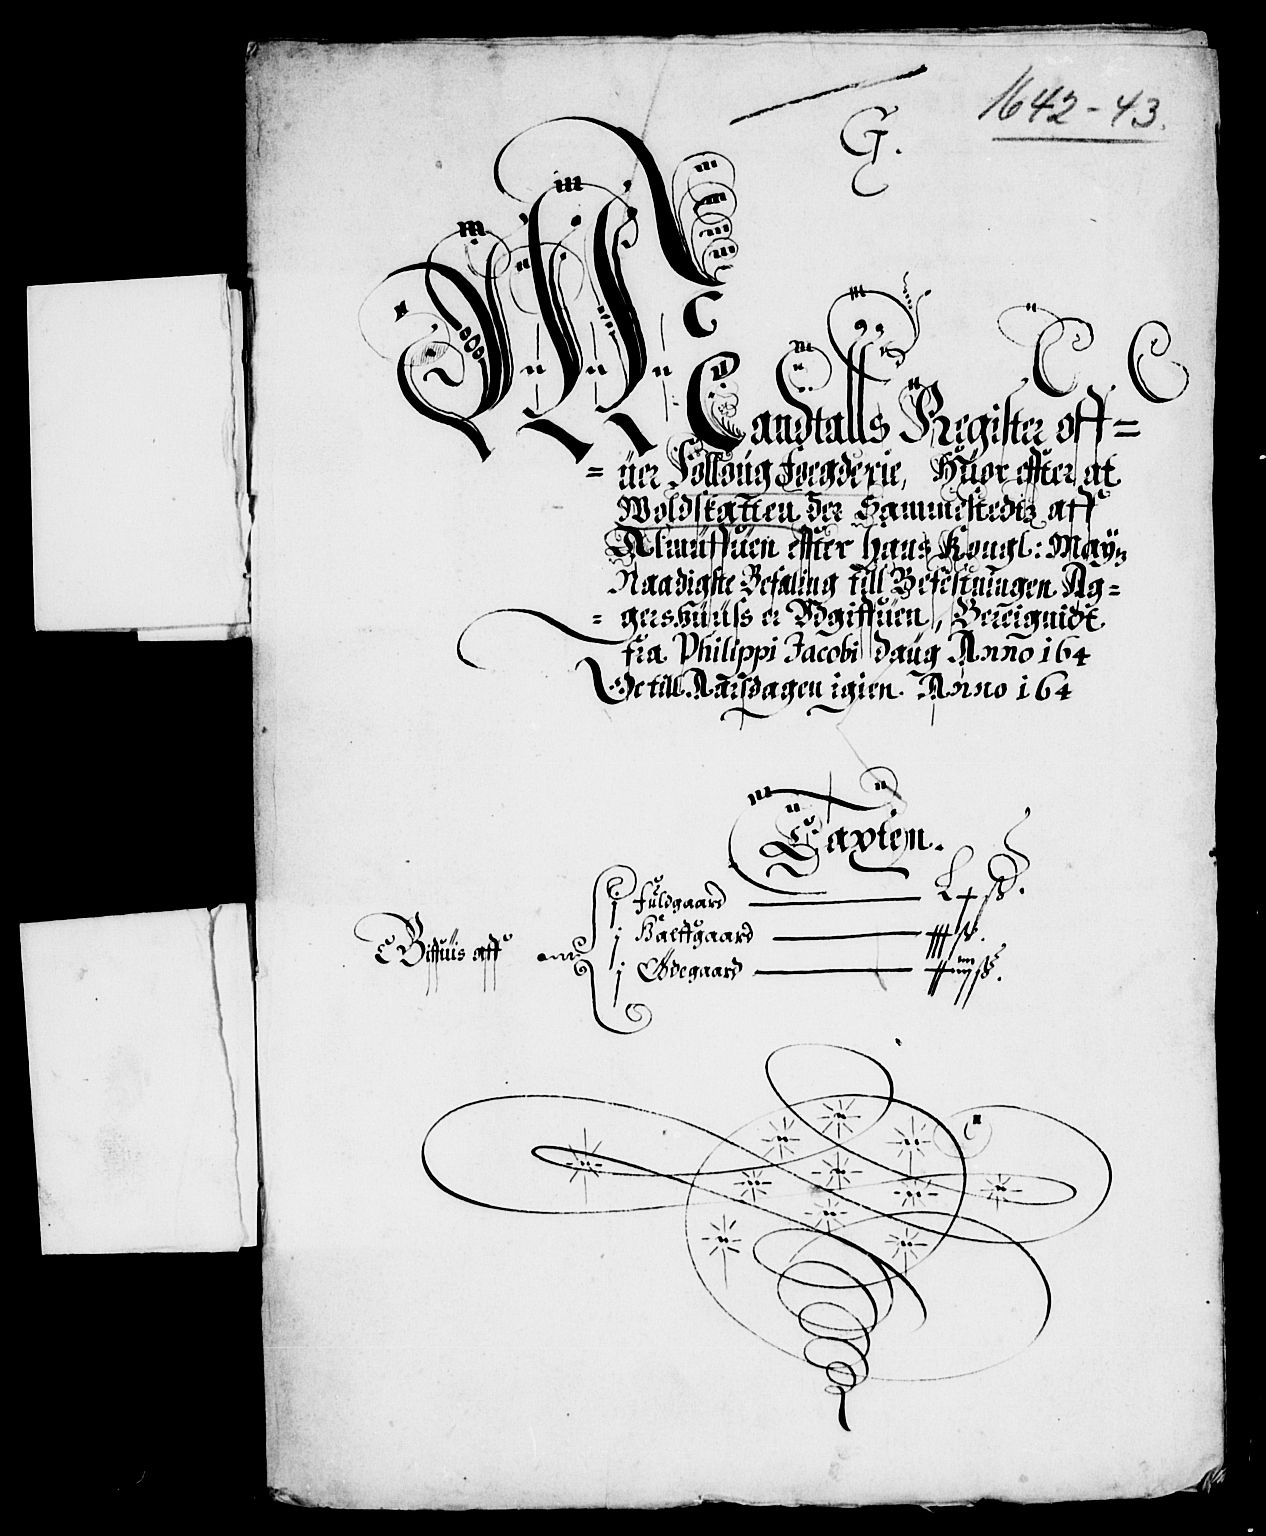 1642-43.
G.
Mandtalls Register off=
=üer Folloüg foegderie, Hüor effter at
Woldskatten der Sammestedtz aff
Almüffüen effter hans Kongl: Maÿ:
Naadigste Befaling till Befestningen Ag=
=gershüüss er Vdgiffüen, Bereignidt
fra Philippi Jacobi daüg Anno 164
Oc till Aarsdagen igien. Anno 164
Taxten.
j füldgaard
Biffüis aff
j Halffgaard
j Ödegaard